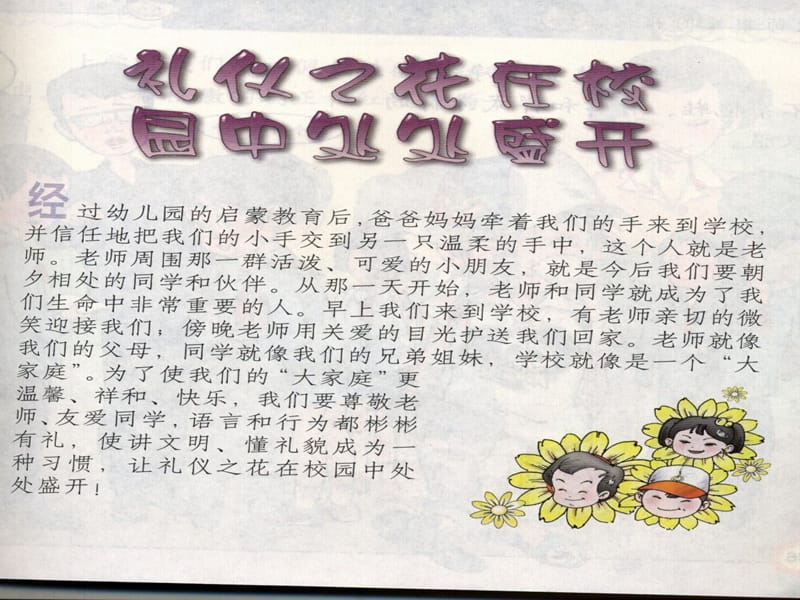 礼仪之花在校
园中处处盛开
经过幼儿园的启蒙教育后，爸爸妈妈牵着我们的手来到学校，
并信任地把我们的小手交到另一只温柔的手中，这个人就是老
师。老师周围那一群活泼、可爱的小朋友，就是今后我们要朝
夕相处的同学和伙伴。从那一天开始，老师和同学就成为了我
们生命中非常重要的人。早上我们来到学校，有老师亲切的微
笑迎接我们；傍晚老师用关爱的目光护送我们回家。老师就像
我们的父母，同学就像我们的兄弟姐妹，学校就像是一个“大
家庭”。为了使我们的“大家庭”更
温馨、祥和、快乐，我们要尊敬老
师、友爱同学，语言和行为都彬彬
有礼，使讲文明、懂礼貌成为一
种习惯，让礼仪之花在校园中处
处盛开！